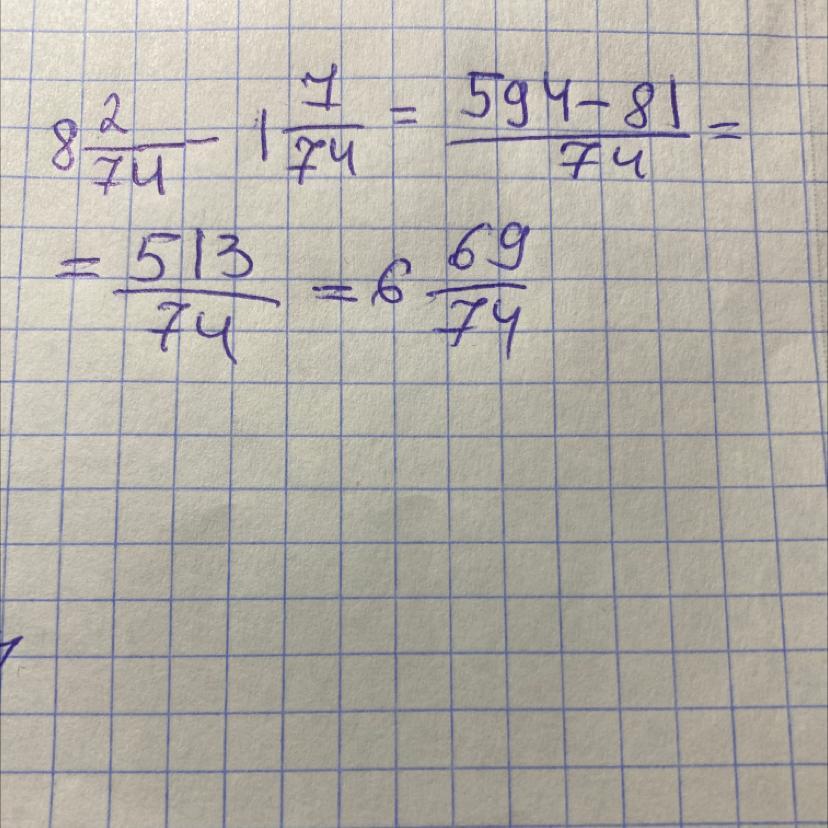 8 2/74 - 1 7/74 = 594-81/74 =
= 513/74 = 6 69/74